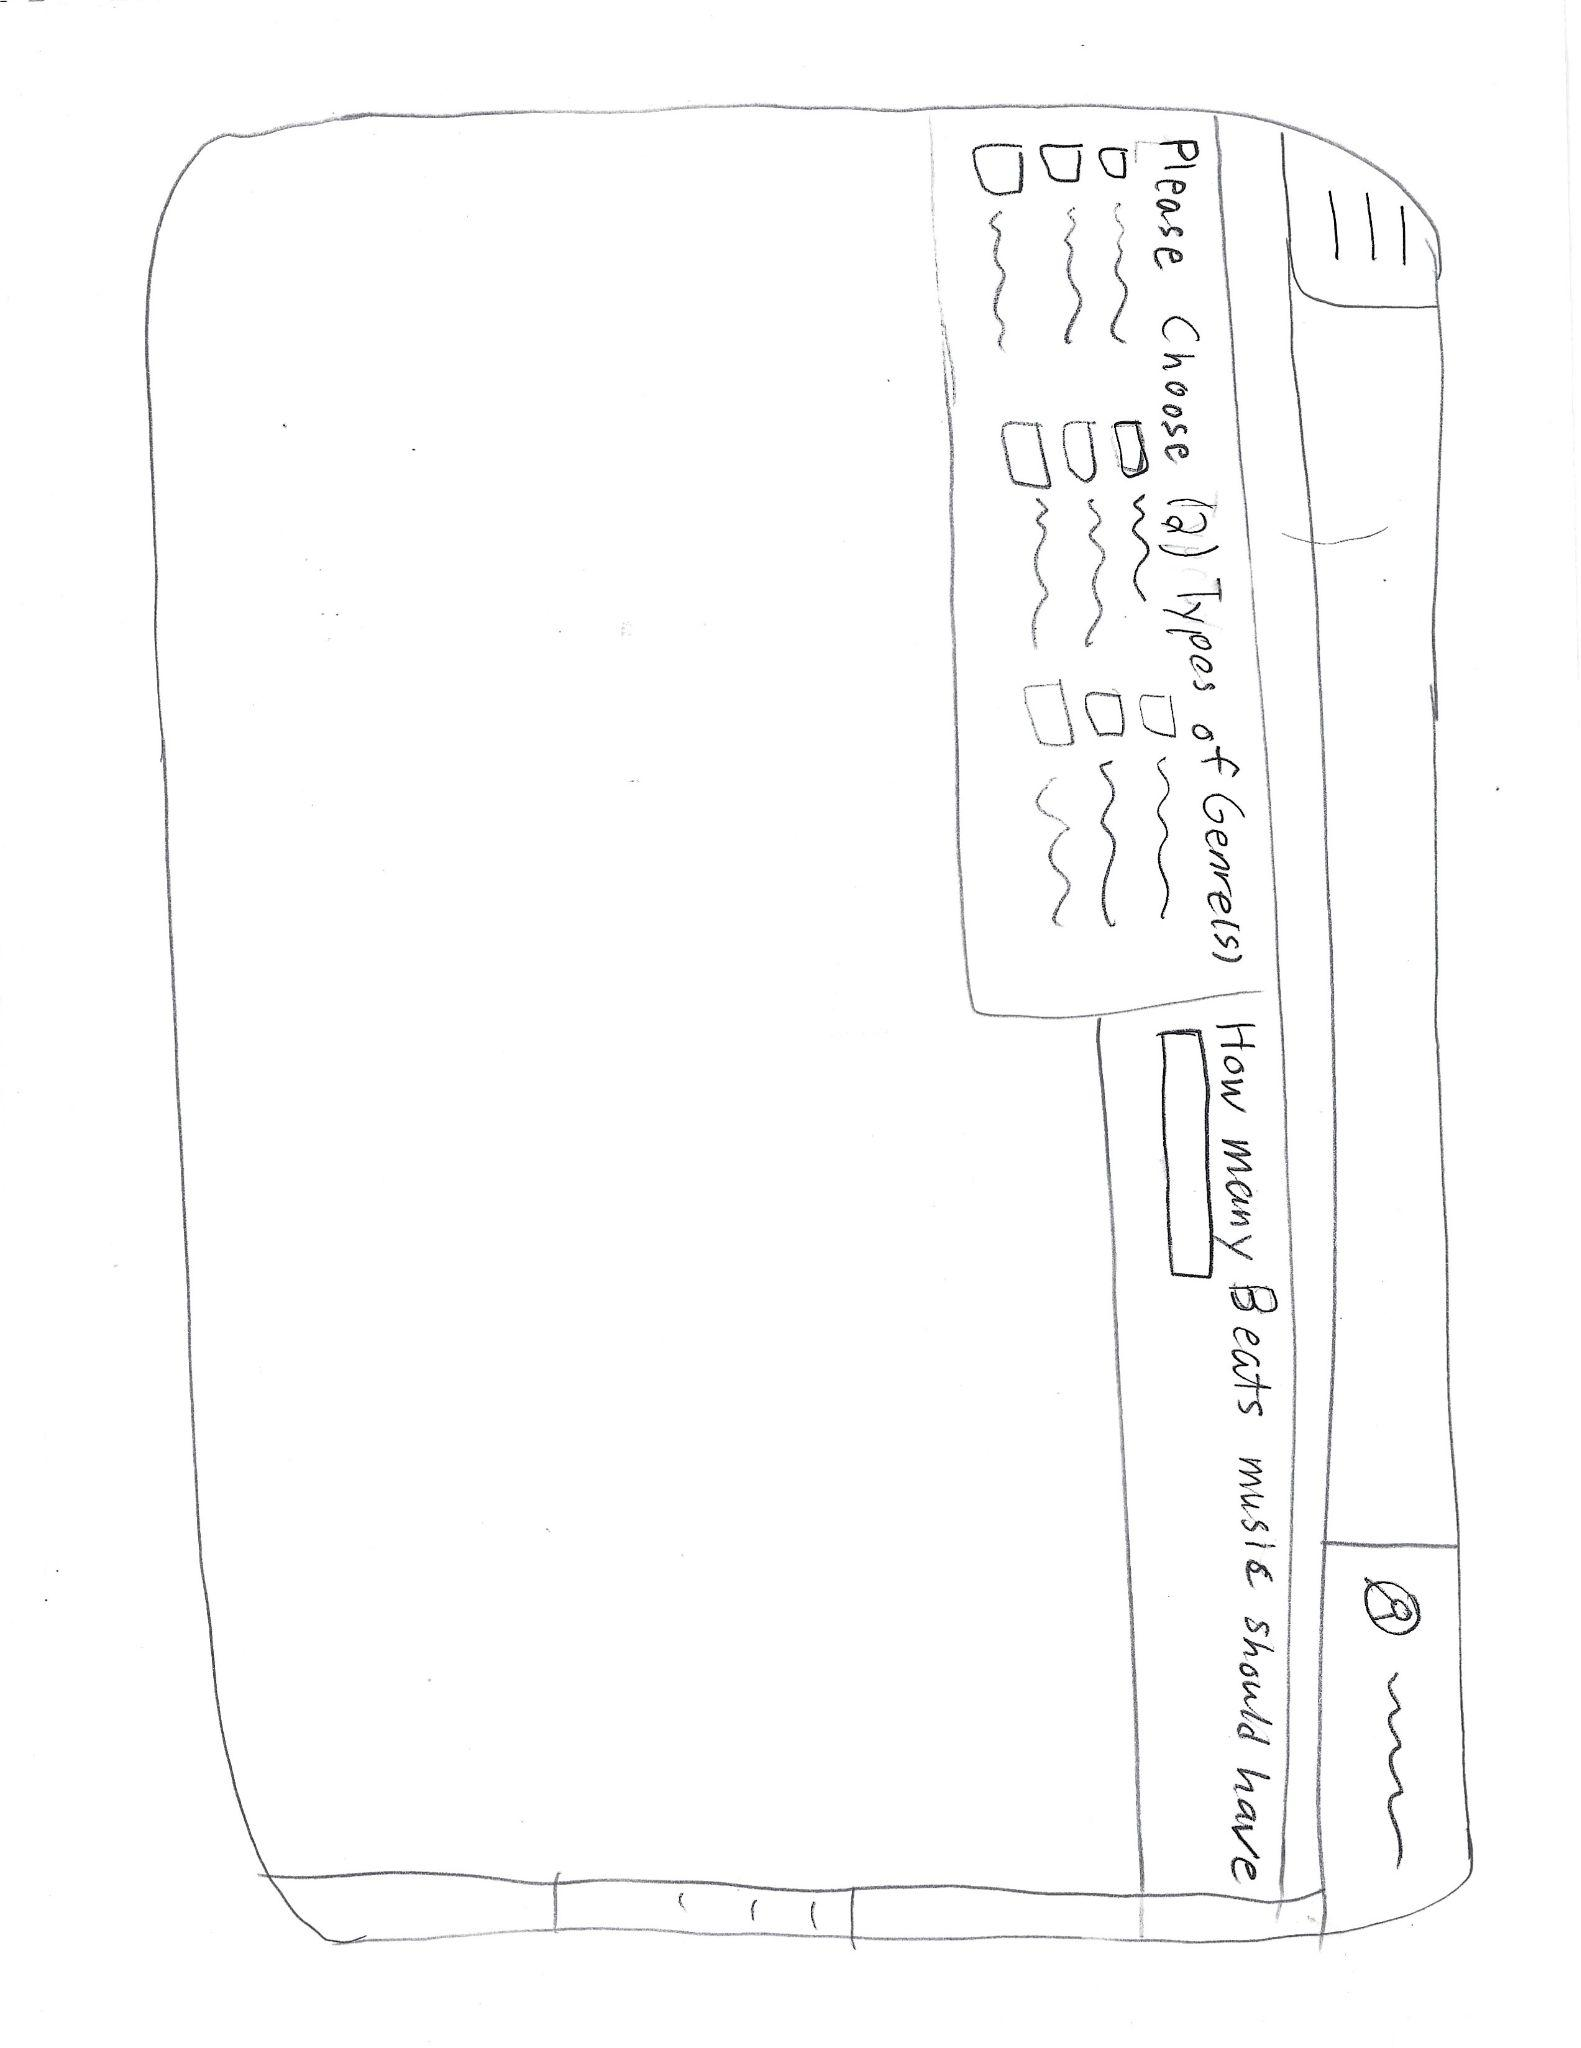 Please Choose (2) Types of Genre(s)
How many Beats music should have